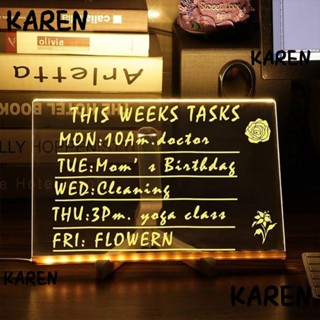 KAREN
KAREN
olivia
Arletta
THIS WEEKS TASKS
MON:10Am.doctor
TUE:Mom's Birthdag
WED:Cleaning
THU:3Pm. yoga class
FRI: FLOWERN
KAREN
KAREN